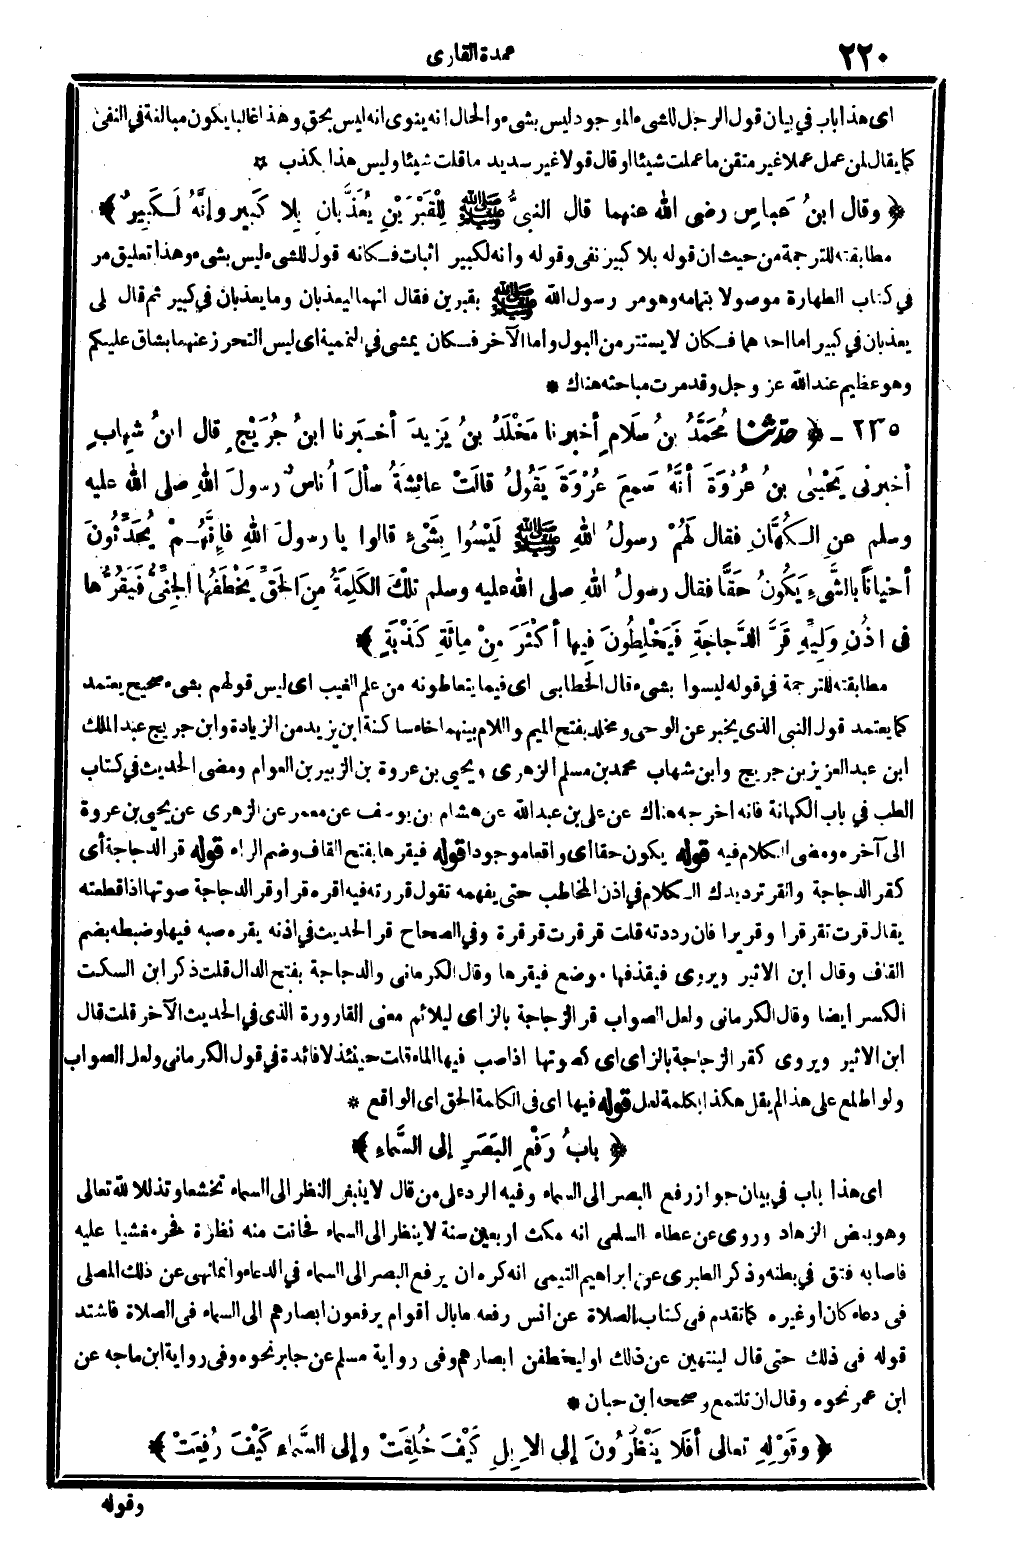 ٢٢٠
عمدة القارى
اى هذا باب في بيان قول الرجل للشىء الموجود ليس بشىء والحال انه ينوى انه ليس بحق وهذا غالبا يكون مبالغة في النفى
كما يقال لمن عمل عملا غير متقن ما عملت شيئا او قال قولا غير سديد ما قلت شيئا وليس هذا بكذب ٭
﴿ وقال ابنُ عَباسٍ رضى الله عنهما قال النبىُّ ﷺ لِلْقَبْرَيْنِ يُعَذَّبانِ بِلا كَبِيرٍ وإنَّهُ لَكَبِيرٌ ﴾
مطابقته للترجمة من حيث ان قوله بلا كبير نفى وقوله وانه لكبير اثبات فكانه قول للشىء ليس بشىء وهذا تعليق مر
في كتاب الطهارة موصولا بتمامه وهو مر رسول الله ﷺ بقبرين فقال انهما ليعذبان وما يعذبان في كبير ثم قال لى
يعذبان في كبير اما احدهما فكان لا يستتر من البول واما الآخر فكان يمشى في النميمة اى ليس التحرز عنهما بشاق عليكم
وهو عظيم عند الله عز وجل وقد مرت مباحثه هناك ٭
٢٣٥ ـ ﴿ حدثنا مُحَمَّدُ بنُ سَلَامٍ أخبرنا مَخْلَدُ بنُ يَزِيدَ أخبرنا ابنُ جُرَيْجٍ قال ابنُ شِهابٍ
أخبرنى يَحْيٰى بنُ عُرْوَةَ أنَّهُ سَمِعَ عُرْوَةَ يَقُولُ قالَتْ عائِشَةُ سألَ أُناسٌ رسولَ اللهِ صلى الله عليه
وسلم عنِ الكُهَّانِ فقال لَهُمْ رسولُ اللهِ ﷺ لَيْسُوا بِشَىْءٍ قالوا يا رسولَ اللهِ فإنَّهُمْ يُحَدِّثُونَ
أحْيانًا بالشَّىءِ يَكُونُ حَقًّا فقال رسولُ اللهِ صلى الله عليه وسلم تلْكَ الكَلِمَةُ مِنَ الحَقِّ يَخْطَفُها الجِنِّىُّ فَيَقُرُّها
فى اذُنِ وَلِيِّهِ قَرَّ الدَّجاجَةِ فَيَخْلِطُونَ فِيها أكْثَرَ مِنْ مِائَةِ كَذْبَةٍ ﴾
مطابقته للترجمة في قوله ليسوا بشىء قال الخطابى اى فيما يتعاطونه من علم الغيب اى ليس قولهم بشىء صحيح يعتمد
كما يعتمد قول النبى الذى يخبر عن الوحى ومخلد بفتح الميم واللام بينهما خاء ساكنة ابن يزيد من الزيادة وابن جريج عبد الملك
ابن عبد العزيز بن جريج وابن شهاب محمد بن مسلم الزهرى ويحيى بن عروة بن الزبير بن العوام ومضى الحديث في كتاب
الطب في باب الكهانة فانه اخرجه هناك عن على بن عبد الله عن هشام بن يوسف عن معمر عن الزهرى عن يحيى بن عروة
الى آخره ومضى الكلام فيه قوله يكون حقا اى واقعا موجودا قوله فيقرها بفتح القاف وضم الراء قوله قر الدجاجة أى
كقر الدجاجة والقر ترديدك الكلام في اذن المخاطب حتى يفهمه تقول قررته فيه اقره قرا وقر الدجاجة صوتها اذا قطعته
يقال قرت تقر قرا وقريرا فان رددته قلت قرقرت قرقرة وفي الصحاح قر الحديث في اذنه يقره صبه فيها وضبطه بضم
القاف وقال ابن الاثير ويروى فيقذفها موضع فيقرها وقال الكرمانى والدجاجة بفتح الدال قلت ذكر ابن السكت
الكسر ايضا وقال الكرمانى ولعل الصواب قر الزجاجة بالزاى ليلائم معنى القارورة الذى في الحديث الآخر قلت قال
ابن الاثير ويروى كقر الزجاجة بالزاى اى كصوتها اذا صب فيها الماء قلت حينئذ لا فائدة في قول الكرمانى ولعل الصواب
ولو اطلع على هذا لم يقل هكذا بكلمة لعل قوله فيها اى فى الكلمة الحق اى الواقع ٭
﴿ بابُ رَفْعِ البَصَرِ إلى السَّماءِ ﴾
اى هذا باب في بيان جواز رفع البصر الى السماء وفيه الرد على من قال لا ينبغى النظر الى السماء تخشعا وتذللا لله تعالى
وهو بعض الزهاد وروى عن عطاء السلمى انه مكث اربعين سنة لا ينظر الى السماء فحانت منه نظرة فخر مغشيا عليه
فاصابه فتق في بطنه وذكر الطبرى عن ابراهيم التيمى انه كره ان يرفع البصر الى السماء في الدعاء وانما نهى عن ذلك المصلى
فى دعاء كان او غيره كما تقدم فى كتاب الصلاة عن انس رفعه ما بال أقوام يرفعون ابصارهم الى السماء فى الصلاة فاشتد
قوله فى ذلك حتى قال لينتهين عن ذلك او ليخطفن ابصارهم وفى رواية مسلم عن جابر نحوه وفى رواية ابن ماجه عن
ابن عمر نحوه وقال ان تلتمع وصححه ابن حبان ٭
﴿ وقَوْلِهِ تعالى أفَلا يَنْظُرُونَ إلى الابِلِ كَيْفَ خُلِقَتْ وإلى السَّماءِ كَيْفَ رُفِعَتْ ﴾
وقوله